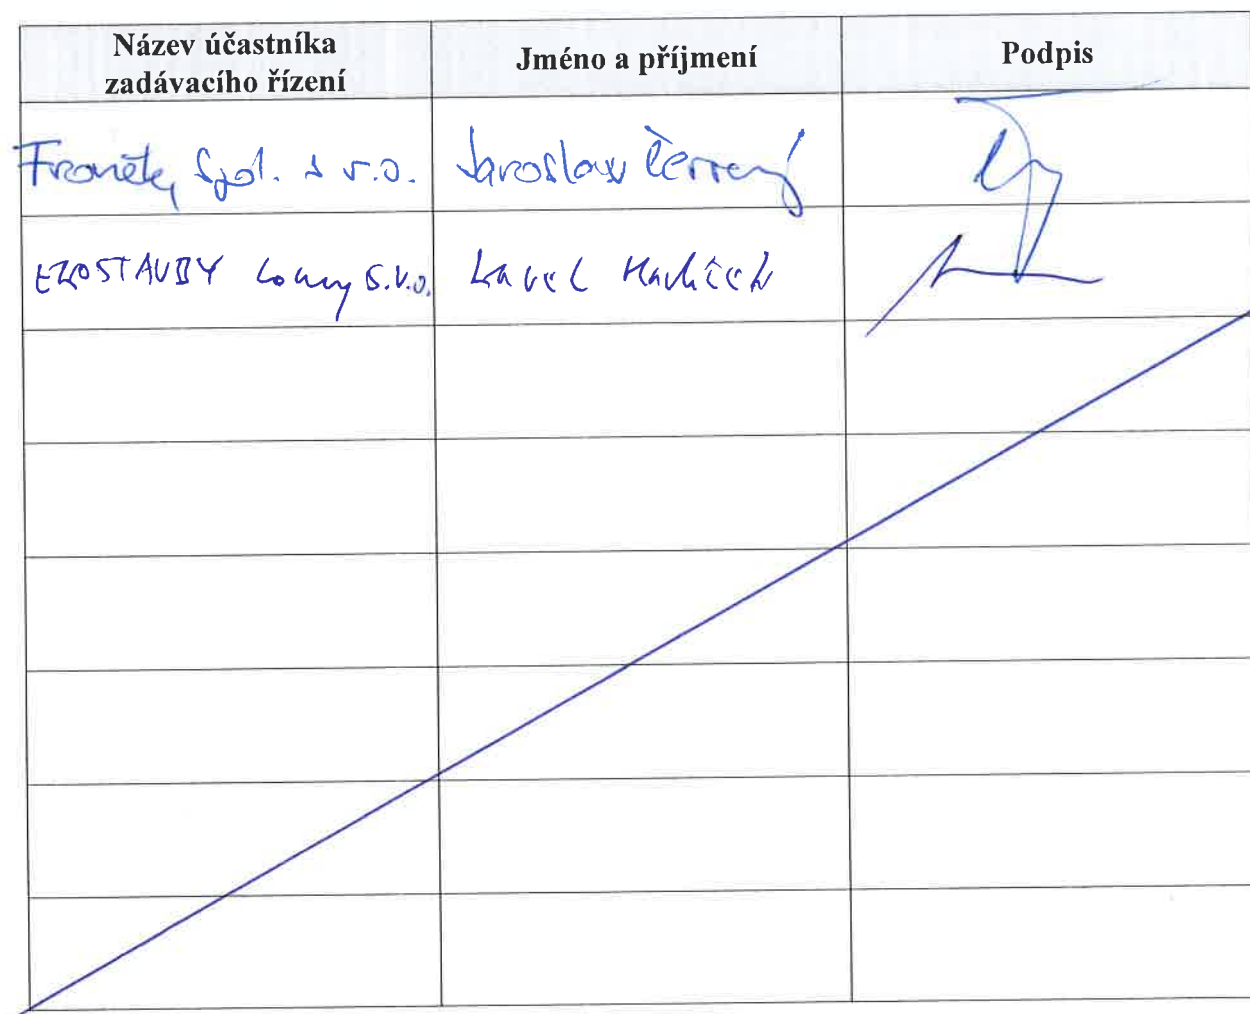 Název účastníka
zadávacího řízení
Jméno a příjmení
Podpis
Froněk, spol. s r.o. Jaroslav Černý
s.r.o. Havlíček